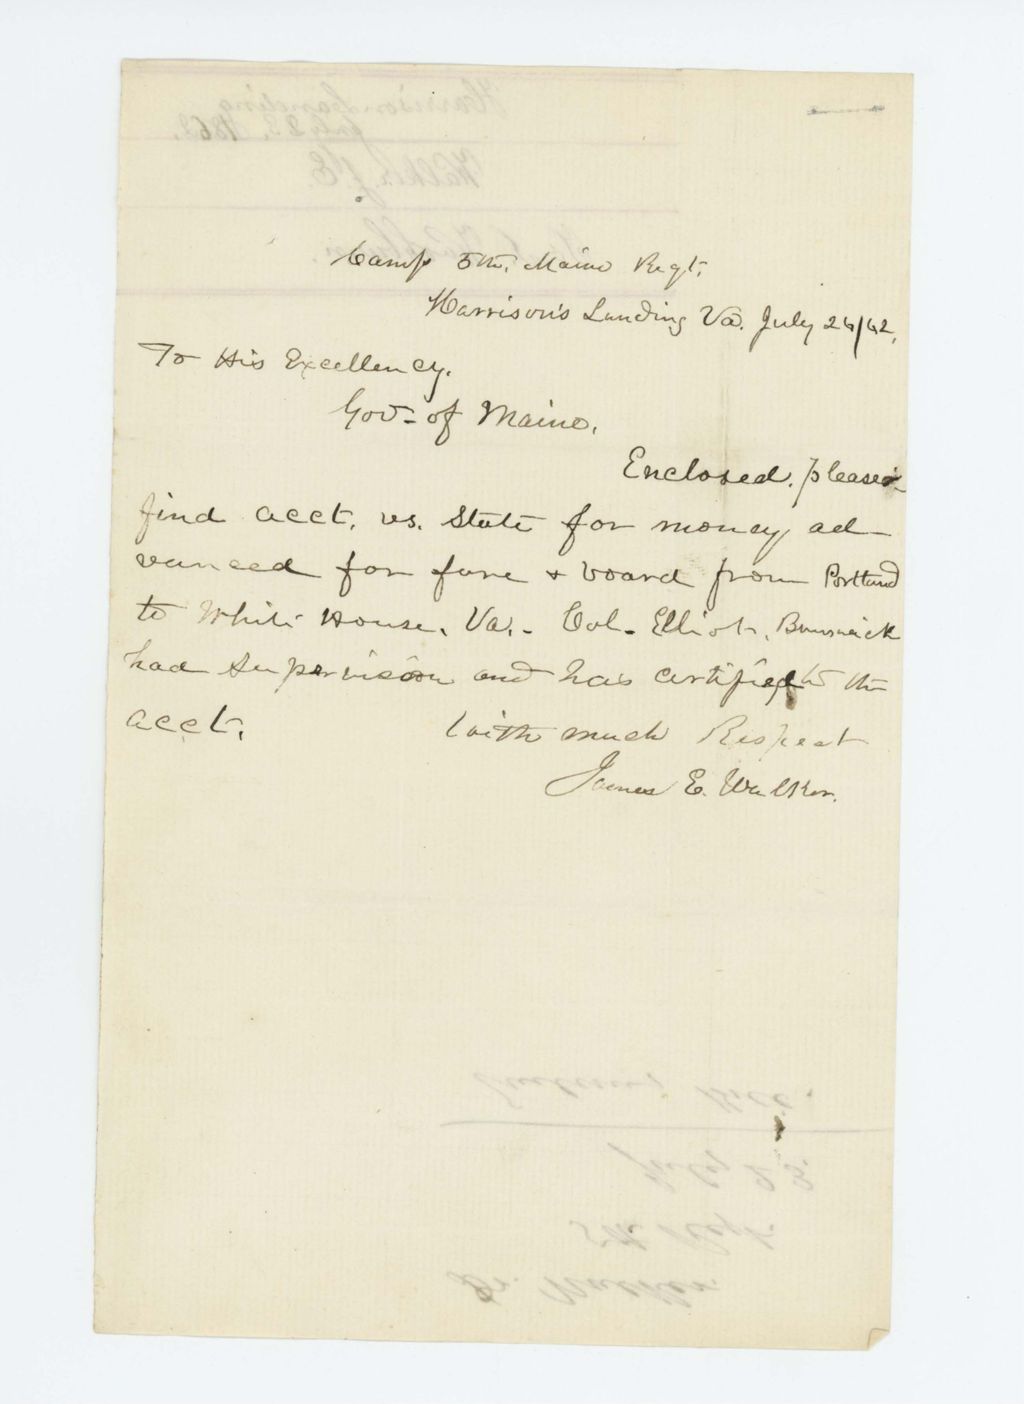 Camp 5th. Maine Regt.
Harrison's Landing Va. July 24/62.
To His Excellency.
Gov- of Maine.
Enclosed. please
find acct. vs. State for money ad-
vanced for fare & board from Portland
to White House. Va.- Col. Elliot, Brunswick
had supervision and has certified to the
acct.
With much Respect
James E. Walker.
Harrison Landing
July 23. 1862.
Walker J. E.
July 23.
5th Regt.
Dr. Walker